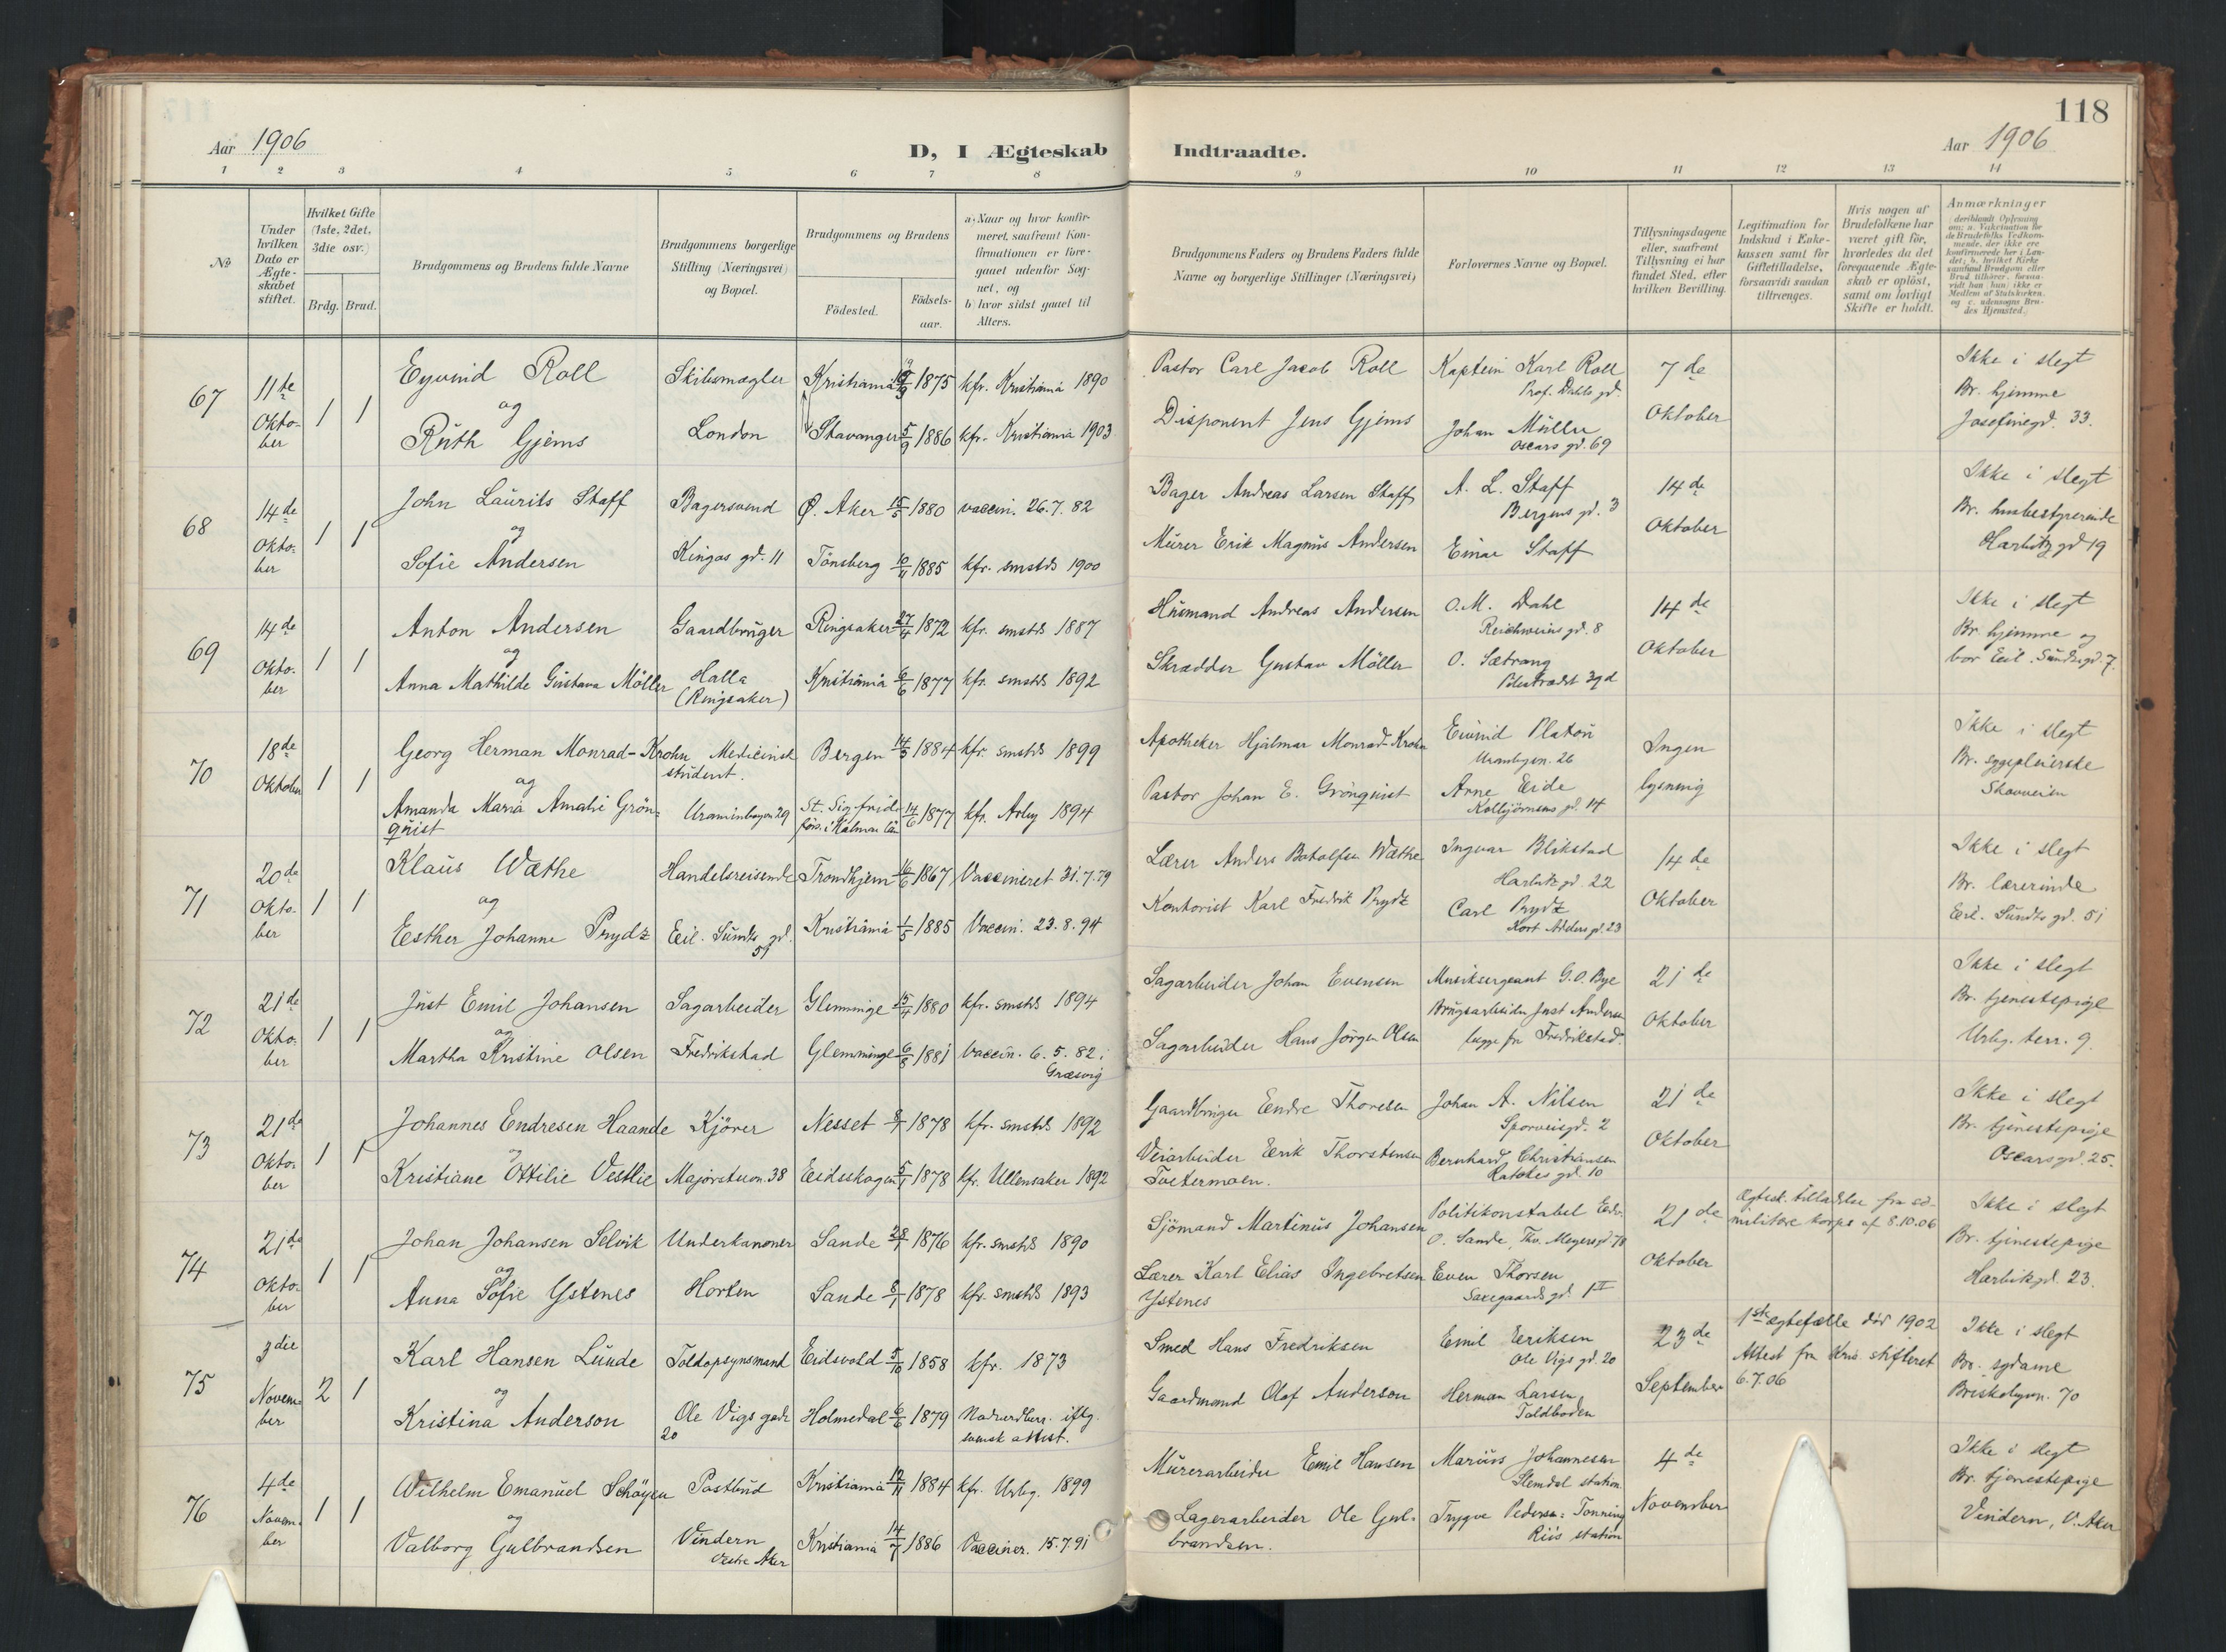 118
Aar 1906
D, I Ægteskab Indtraadte.
Aar 1906
1 2 3 4 5 6 7 8 9 10 11 12 13 14
No
Under hvilken Dato er Ægte-skabet stiftet.
Hvilket Gifte (1ste, 2det, 3die osv.)
Brdg. Brud.
Brudgommens og Brudens fulde Navne
Brudgommens borgerlige Stilling (Næringsvei) og Bopæl.
Brudgommens og Brudens
Födested.
Födsels-aar.
a) Naar og hvor konfir-meret, saafremt Kon-firmationen er fore-gaaet udenfor Sog-net, og
b) hvor sidst gaaet til Alters.
Brudgommens Faders og Brudens Faders fulde Navne og borgerlige Stillinger (Næringsvei)
Forlovernes Navne og Bopæl.
Tillysningsdagene eller, saafremt Tillysning ei har fundet Sted, efter hvilken Bevilling.
Legitimation for Indskud i Enke-kassen samt for Giftetilladelse, forsaavidt saadan tiltrænges.
Hvis nogen af Brudefolkene har været gift för, hvorledes da det foregaaende Ægte-skab er oplöst, samt om lovligt Skifte er holdt.
Anmærkninger (deriblandt Oplysning om: a. Vakcination for de Brudefolks Vedkom-mende, der ikke ere konfirmerede her i Lan-det; b. hvilket Kirke-samfund Brudgom eller Brud tilhører, forsaa-vidt han (hun) ikke er Medlem af Statskirken, og c. udensogns Bru-des Hjemsted.)
67 11te Okto-ber 1 1
Eyvind Roll Skibsmægler Kristiania 1875 kfr. Kristiania 1890 Pastor Carl Jacob Roll Kaptein Karl Roll Prof. Dahls gd. 7de Ikke i slegt
og
Ruth Gjems London Stavanger 5/9 1886 kfr. Kristiania 1903 Disponent Jens Gjems Johan Müller Oscars gd. 69 Oktober Br. hjemme Josefinegd. 33.
68 14de Okto-ber 1 1
John Laurits Staff Bagersvend Ø. Aker 15/5 1880 vaccin. 26.7.82 Bager Andreas Larsen Staff A. L. Staff Bergens gd. 3 14de Ikke i slegt
og
Sofie Andersen Kingos gd. 11 Tönsberg 10/11 1885 kfr. smstds 1900 Murer Erik Magnus Andersen Einar Staff Oktober Br. husbestyrerinde Harbitz gd 19
69 14de Okto-ber 1 1
Anton Andersen Gaardbruger Ringsaker 27/4 1872 kfr. smstds 1887 Husmand Andreas Andersen O. M. Dahl Reichweins gd. 8 14de Ikke i slegt
og
Anna Mathilde Gustava Möller Halla (Ringsaker) Kristiania 6/6 1877 kfr. smstds 1892 Skrædder Gustav Möller O. Sætrang Oktober Br. hjemme og bor Eil. Sundts gd. 7.
70 18de Oktober 1 1
Georg Herman Monrad-Krohn Medicinsk student. Bergen 14/3 1884 kfr. smstds 1899 Apotheker Hjalmar Monrad-Krohn Eivind Platou Uranbgn. 26 Ingen Ikke i slegt
og
Amanda Maria Amalie Grön-quist Uraninborgvn 29 St. Sigfrids förs. i Kalmar län 14/6 1877 kfr. Arby 1894 Pastor Johan E. Grönquist Arne Eide Kolbjörnsens gd. 14 lysning Br. sygepleierske Skovveien
71 20de Okto-ber 1 1
Klaus Wæthe Handelsreisende Trondhjem 16/6 1867 Vaccineret 31.7.79 Lærer Anders Botolfsen Wæthe Ingvar Blikstad Harbitz gd. 22 14de Ikke i slegt
og
Eesther Johanne Prydz Eil. Sundts gd. 51 Kristiania 1/5 1885 Vaccin. 23.8.94 Kontorist Karl Fredrik Prydz Carl Prydz Kort Adelers gd. 23 Oktober Br. lærerinde Eil. Sundts gd. 51
72 21de Okto-ber 1 1
Just Emil Johansen Sagarbeider Glemminge 15/4 1880 kfr. smstds 1894 Sagarbeider Johan Evensen Musiksergeant G. O. Bye 21de Ikke i slegt
og
Martha Kristine Olsen Fredrikstad Glemminge 6/8 1881 Vaccin. 6.5.82 i Græsvig Sagarbeider Hans Jörgen Olsen Brugsarbeider Just Andersen begge fra Fredrikstad. Oktober Br. tjenestepige Urbg. terr. 9.
73 21de Okto-ber 1 1
Johannes Endresen Haande Kjörer Nesset 8/7 1878 kfr. smstds 1892 Gaardbruger Endre Thoresen Johan A. Nilsen Sporveisgd. 2 21de Ikke i slegt
og
Kristiane Ottilie Vestlie Majorstuvn. 38 Eidsskogen 5/1 1878 kfr. Ullensaker 1892 Veiarbeider Erik Thorstensen Tvetermoen. Bernhard Christiansen Ratckes gd. 10 Oktober Br. tjenestepige Oscars gd. 25.
74 21de Okto-ber 1 1
Johan Johansen Selvik Underkanoner Sande 28/1 1876 kfr. smstds 1890 Sjömand Martinus Johansen Politikonstabel O. Sande, Thv. Meyers gd. 78 21de Ægtesk. tilladelse fra sö-militære korps af 8.10.06 Ikke i slegt
og
Anna Sofie Ystenes Horten Sande 8/1 1878 kfr. smstds 1893 Lærer Karl Elias Ingebretsen Ystenes Even Thorsen Saxegaards gd. 1 II Oktober Br. tjenestepige Harbitzgd. 23.
75 3die Novem-ber 2 1
Karl Hansen Lunde Toldopsynsmand Eidsvold 5/10 1858 kfr. 1873 Smed Hans Fredriksen Emil Eriksen Ole Vigs gd. 20 23de 1ste ægtefælle död 1902 Ikke i slegt
og
Kristina Anderson Ole Vigs gade 20 Holmedal 6/6 1879 Nadverdber. iflg. svensk attest. Gaardmand Olof Anderson Herman Larsen, Toldboden September Attest fra Kria skifteret 6.7.06 Br. sydame Briskebyvn. 70
76 4de Novem-ber 1 1
Wilhelm Emanuel Schöyen Postbud Kristiania 12/11 1884 kfr. Urbg. 1899 Murerarbeider Emil Hansen Marius Johannesen Slemdal station 4de Ikke i slegt
og
Valborg Gulbrandsen Vindern Vestre Aker Kristiania 14/7 1886 Vacciner. 15.7.91 Lagerarbeider Ole Gul-brandsen. Trygve Pedersen Riis station November Br. tjenestepige Vindern, V. Aker